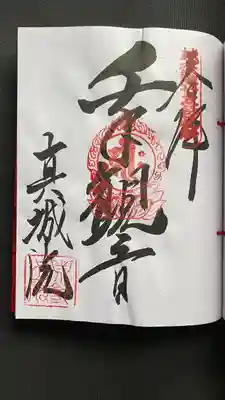 奉拝
千手観音
真城院